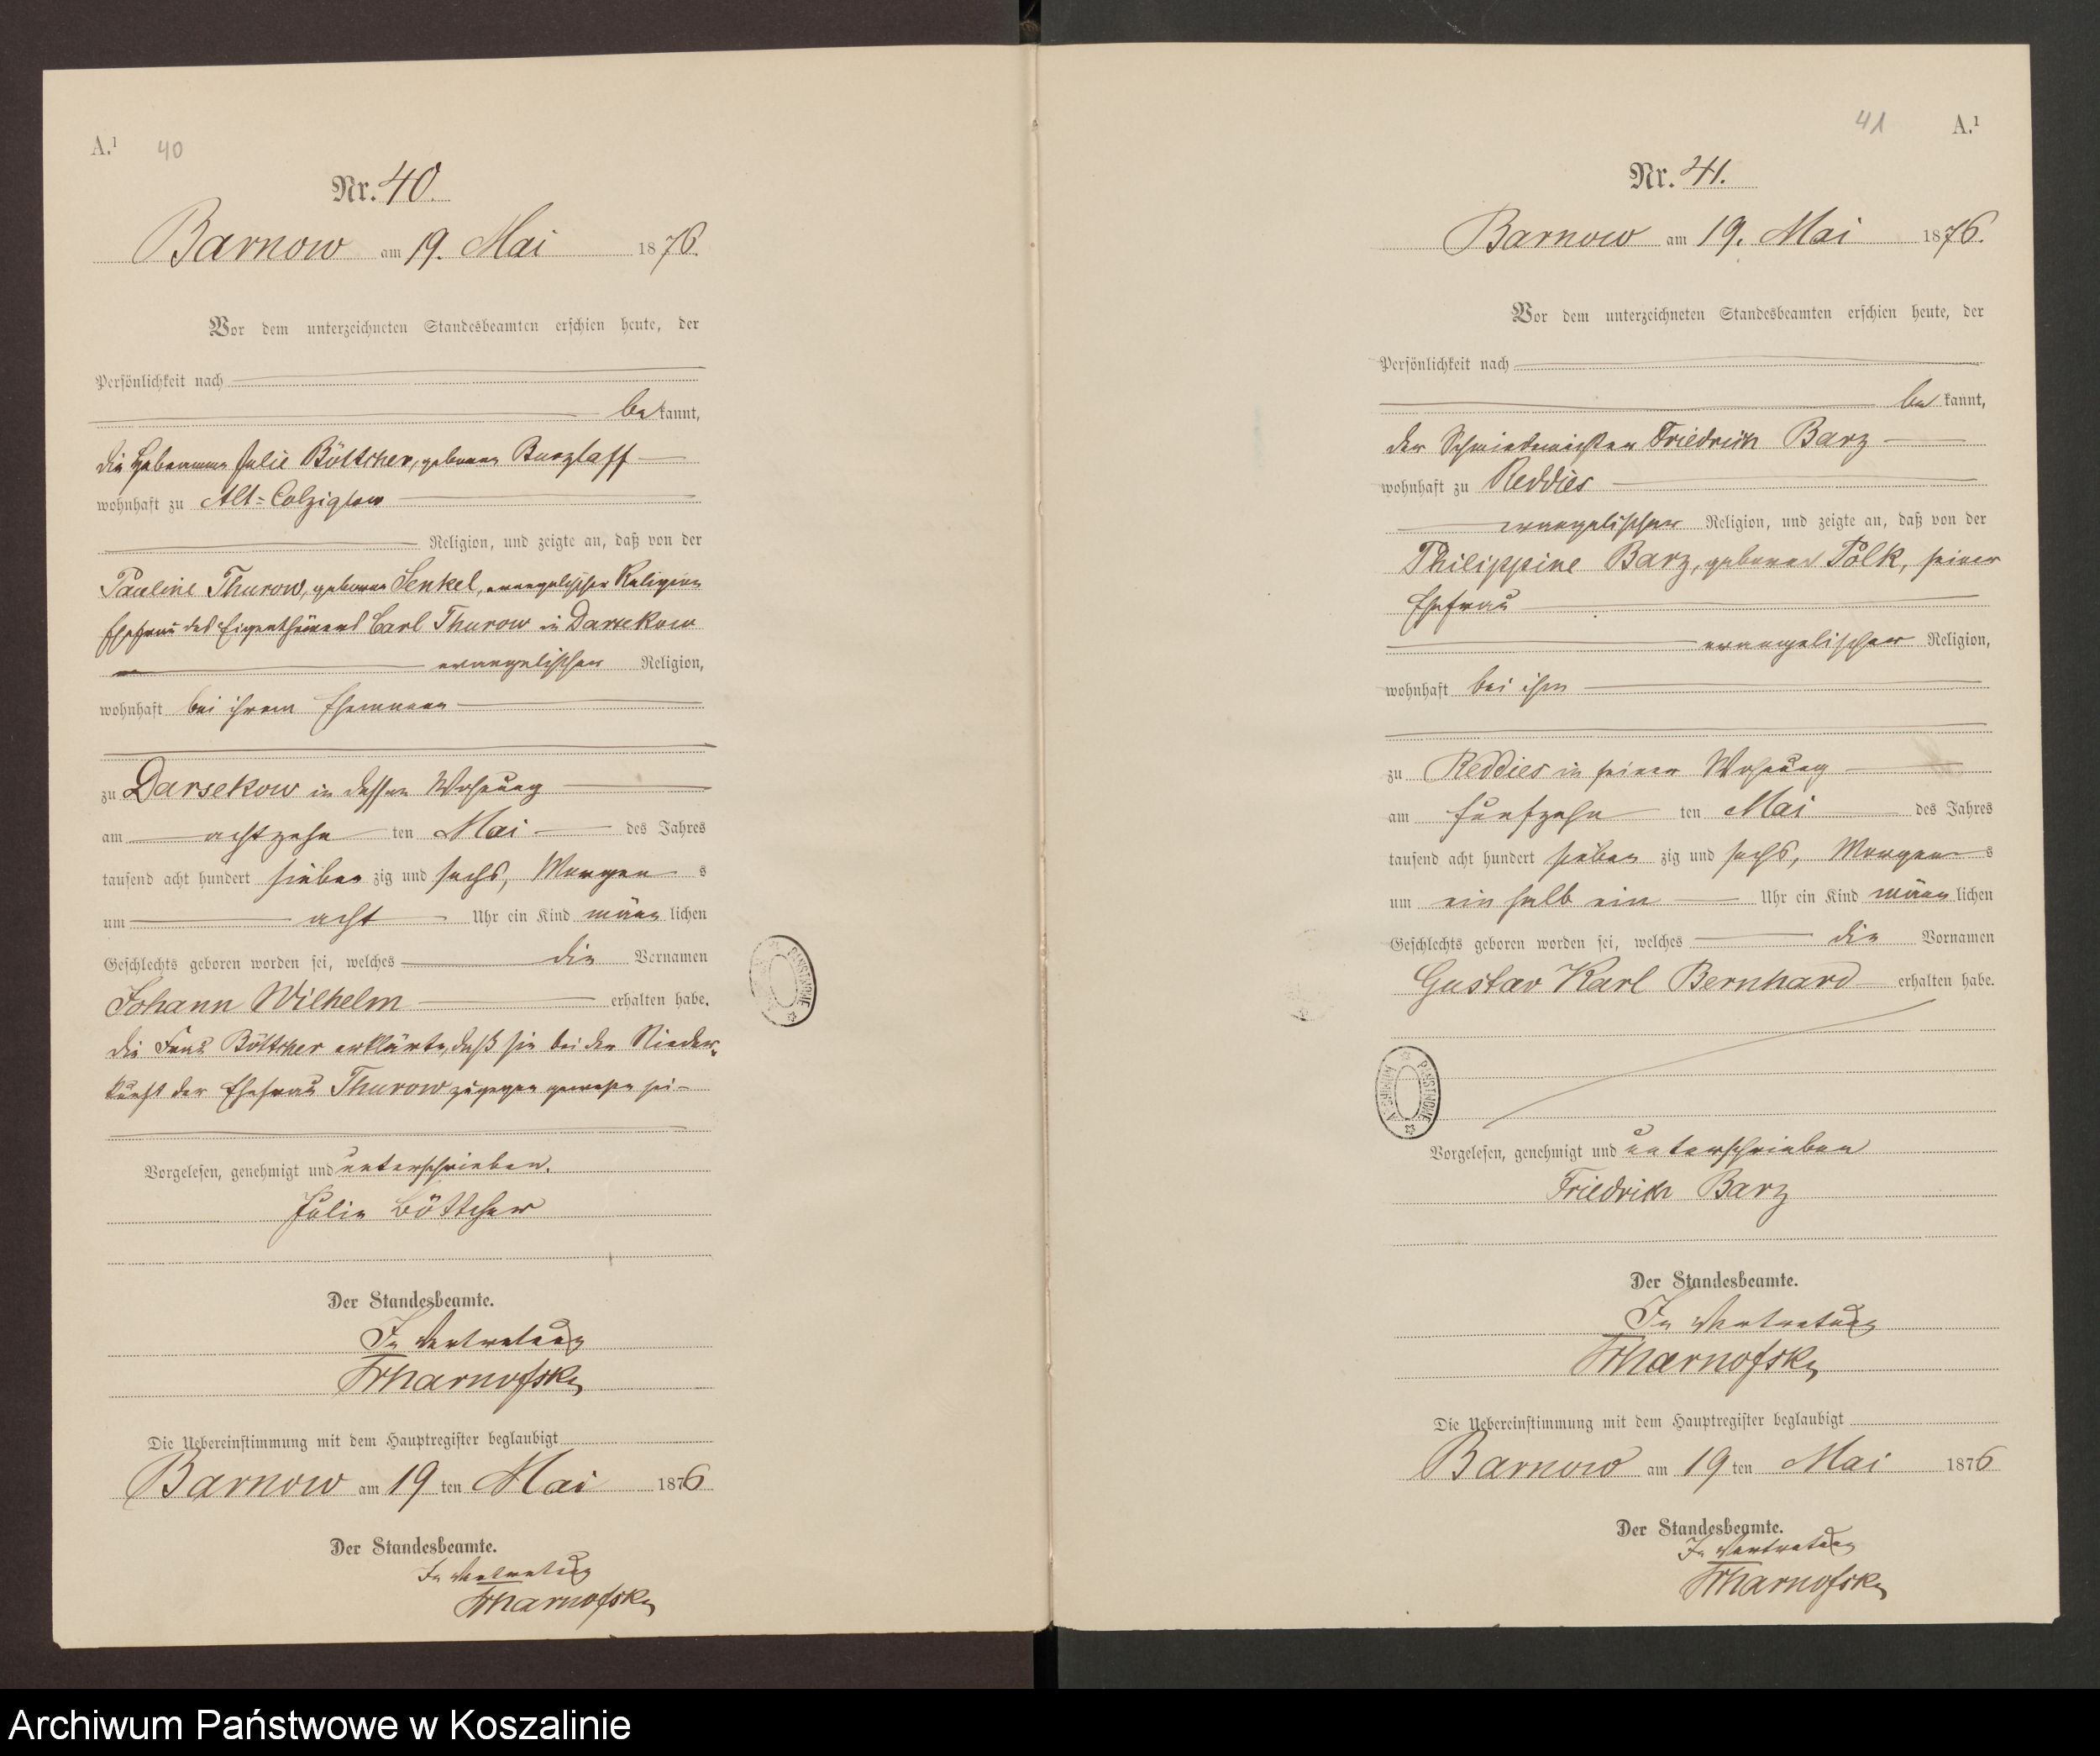 A.¹ 40
Nr. 40.
Barnow am 19. Mai 1876.
Vor dem unterzeichneten Standesbeamten erschien heute, der
Persönlichkeit nach
be kannt,
die Hebamme Julie Böttcher, geborene Buszlaff
wohnhaft zu Alt-Colziglow
Religion, und zeigte an, daß von der
Pauline Thurow, geborene Senkel, evangelischer Religion
Ehefrau des Eigenthümers Carl Thurow in Darsekow
evangelischer Religion,
wohnhaft bei ihrem Ehemann
zu Darsekow in dessen Wohnung
am achtzehn ten Mai des Jahres
tausend acht hundert sieben zig und sechs, Morgen s
um acht Uhr ein Kind männ lichen
Geschlechts geboren worden sei, welches die Vornamen
Johann Wilhelm erhalten habe.
Die Frau Böttcher erklärte, daß sie bei der Nieder-
kunft der Ehefrau Thurow zugegen gewesen sei
Vorgelesen, genehmigt und unterschrieben.
Julie Böttcher
Der Standesbeamte.
In Vertretung
Die Uebereinstimmung mit dem Hauptregister beglaubigt
Barnow am 19 ten Mai 1876
Der Standesbeamte.
In Vertretung
41 A.¹
Nr. 41.
Barnow am 19. Mai 1876.
Vor dem unterzeichneten Standesbeamten erschien heute, der
Persönlichkeit nach
be kannt,
der Schmiedemeister Friedrich Barz
wohnhaft zu Reddies
evangelischer Religion, und zeigte an, daß von der
Philippine Barz, geborene Polk, seiner
Ehefrau
evangelischer Religion,
wohnhaft bei ihm
zu Reddies in seiner Wohnung
am fünfzehn ten Mai des Jahres
tausend acht hundert sieben zig und sechs, Morgen s
um ein halb ein Uhr ein Kind männ lichen
Geschlechts geboren worden sei, welches die Vornamen
Gustav Karl Bernhard erhalten habe.
Vorgelesen, genehmigt und unterschrieben
Friedrich Barz
Der Standesbeamte.
In Vertretung
Die Uebereinstimmung mit dem Hauptregister beglaubigt
Barnow am 19 ten Mai 1876
Der Standesbeamte.
In Vertretung
Archiwum Państwowe w Koszalinie